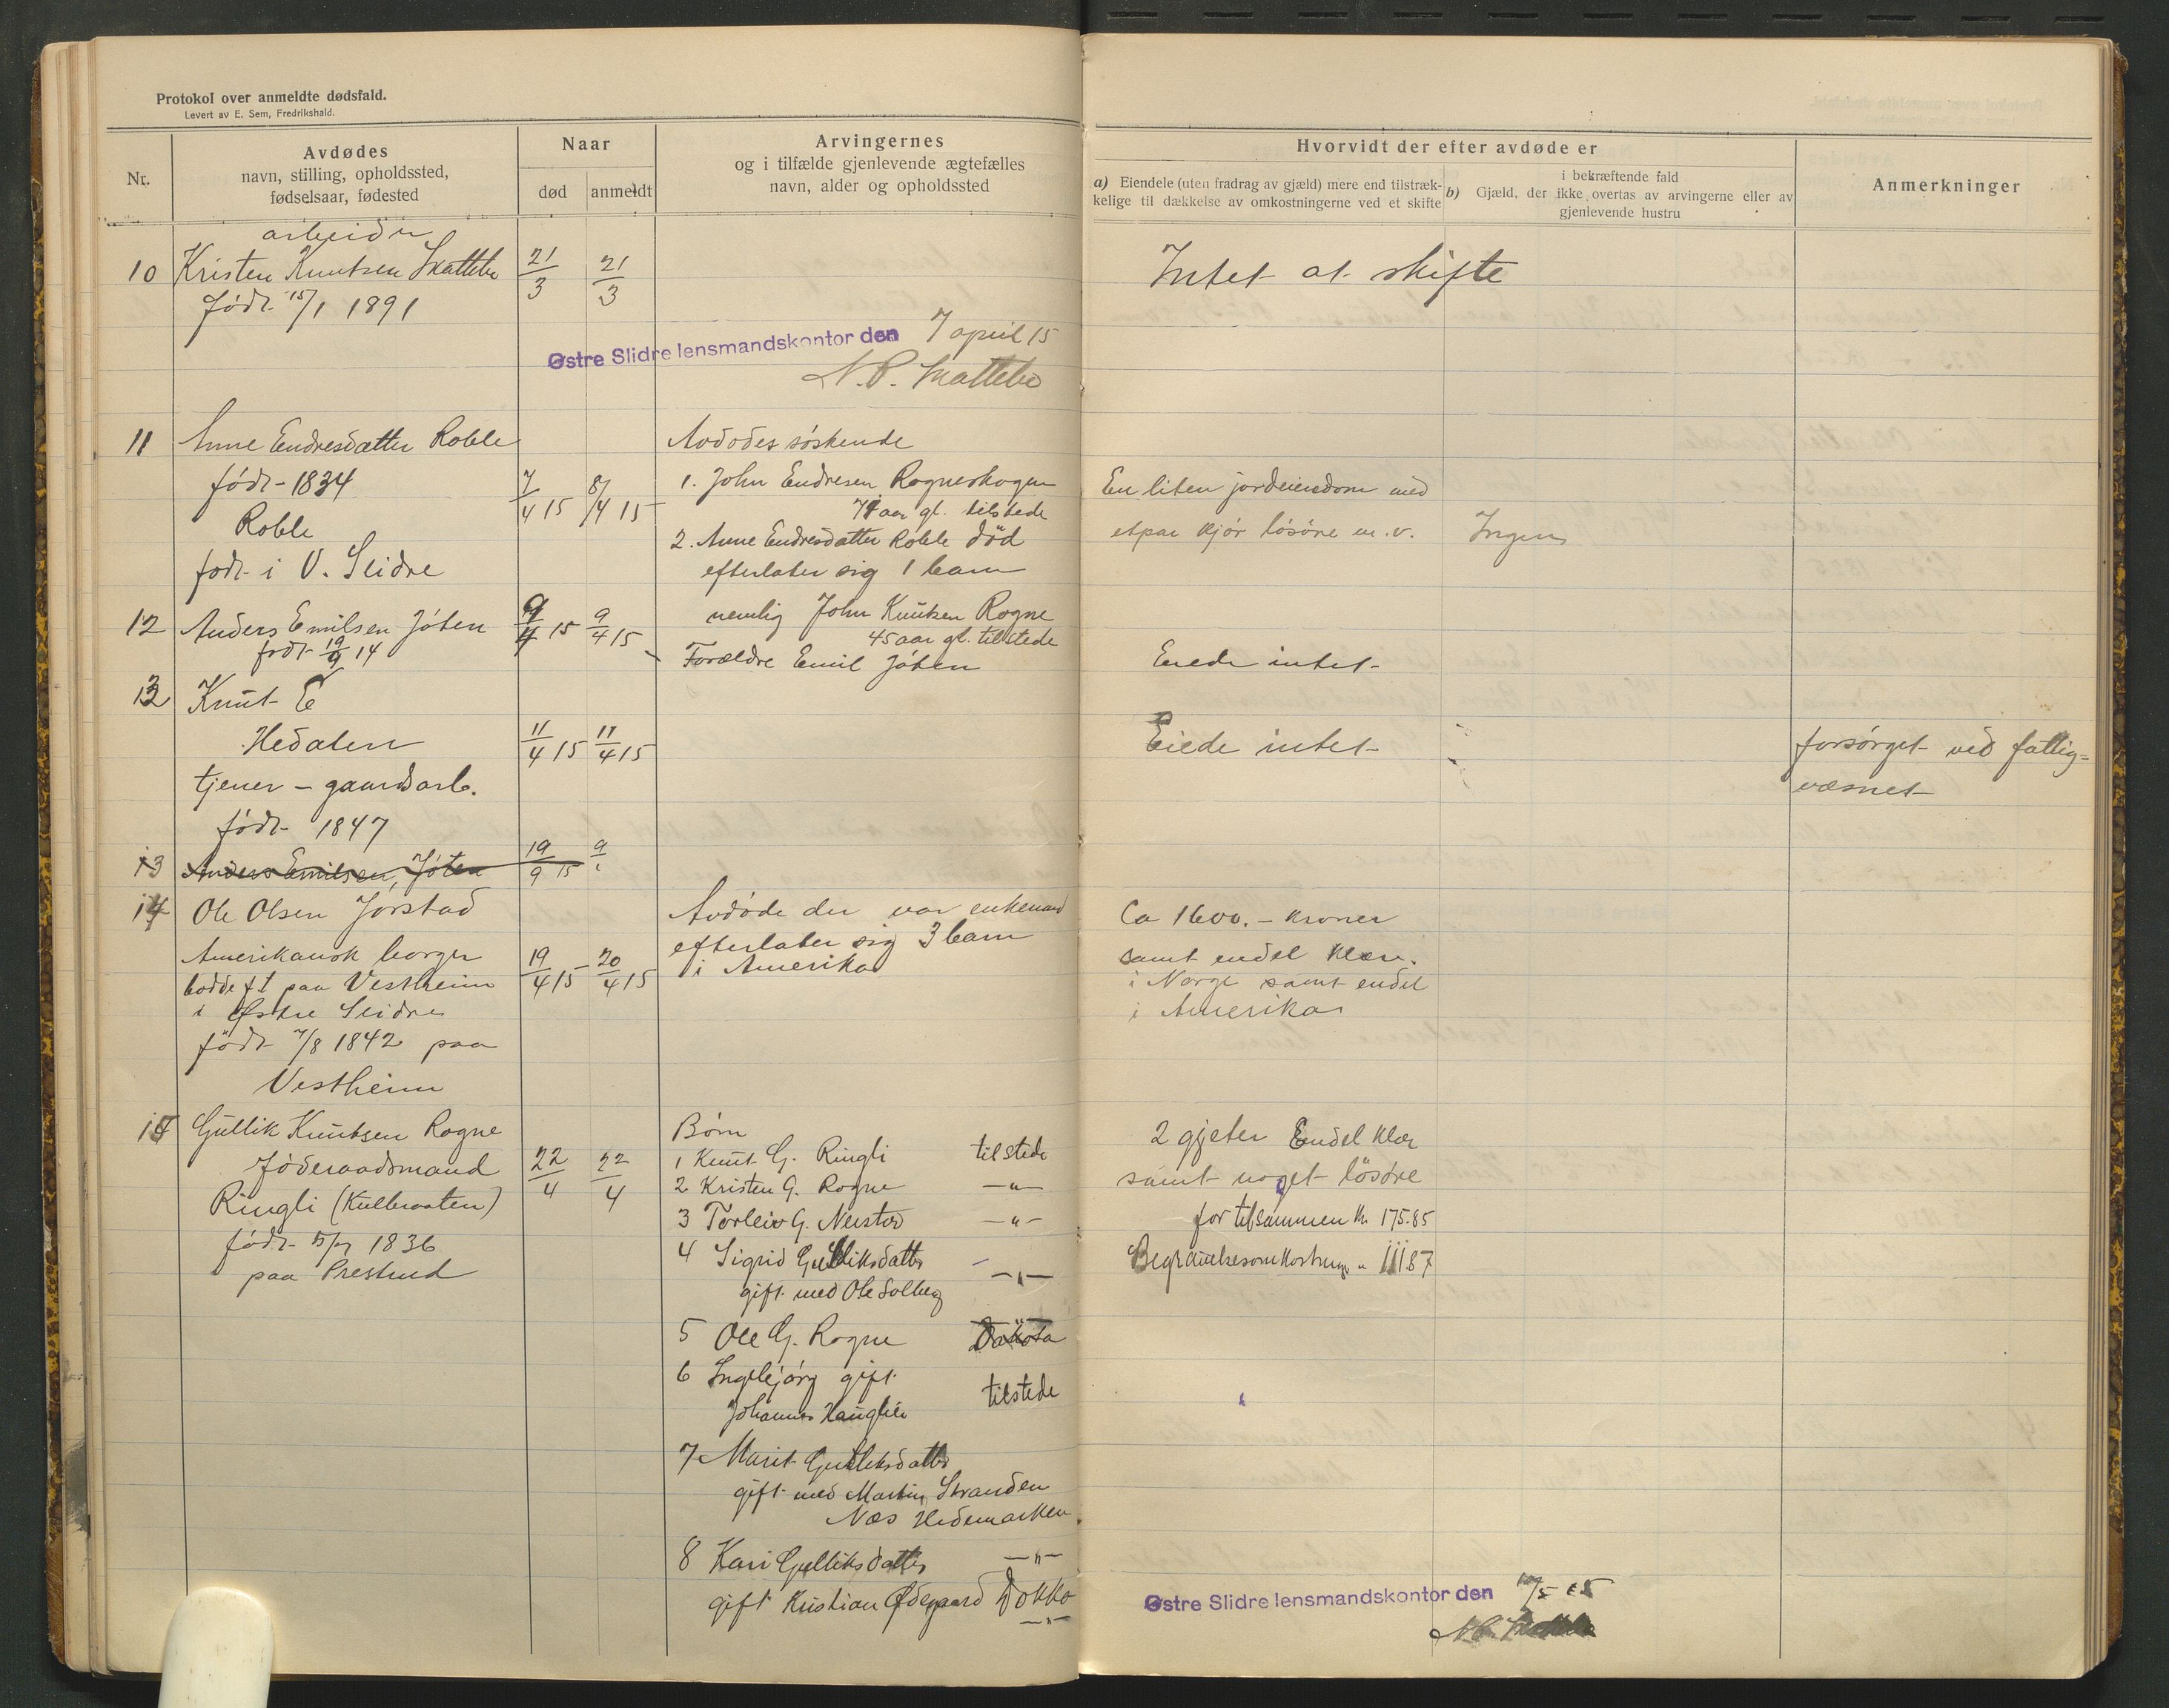 Protokol over anmeldte dødsfald.
Levert av E. Sem, Fredrikshald.
Nr.
Avdødes
navn, stilling, opholdssted,
fødselsaar, fødested
Naar
død
anmeldt
Arvingernes
og i tilfælde gjenlevende ægtefælles
navn, alder og opholdssted
Hvorvidt der efter avdøde er
a) Eiendele (uten fradrag av gjæld) mere end tilstræk-
kelige til dækkelse av omkostningerne ved et skifte
i bekræftende fald
b) Gjæld, der ikke overtas av arvingerne eller av
gjenlevende hustru
Anmerkninger
arbeider
10 Kristen Knutsen Skattebo
født 15/1 1891
21/3
21/3
Intet at skifte
Østre Slidre lensmandskontor den 7 april 15
N.P. Skattebo
11 Anne Endresdatter Roble
født 1834
Roble
født i V. Slidre
7/4 15
8/4 15
Avdødes søskende
1. John Endresen Rogneskogen
71 aar gl. tilstede
2. Anne Endresdatter Roble død
efterlater sig 1 barn
nemlig John Knutsen Rogne
45 aar gl. tilstede
En liten jordeiendom med
etpar kjør løsøre m.v.
Ingen
12 Anders Emilsen Jøten
født 19/9 14
9/4 15
9/4 15
Forældre Emil Jøten
Eiede intet
13 Knut E
Hedalen
tjener - gaardsarb.
født 1847
11/4 15
11/4 15
Eiede intet
forsørget ved fattig=
væsnet
13 Anders Emilsen, Jøten
19/9 15
9
14 Ole Olsen Jørstad
Amerikansk borger
bodde ft paa Vestheim
i Østre Slidre
født 7/8 1842 paa
Vestheim
19/4 15
20/4 15
Avdøde der var enkemand
efterlater sig 3 barn
i Amerika
Ca 1600.- kroner
samt endel klær.
i Norge samt endel
i Amerika
15 Gullik Knutsen Rogne
føderaadsmand
Ringli (Kulbraaten)
født 5/7 1836
paa Prestrud
22/4
22/4
Børn
1 Knut G. Ringli tilstede
2 Kristen G. Rogne —"—
3 Torleiv G. Nerstad —"—
4 Sigrid Gulliksdatter
gift med Ole Solberg —"—
5 Ole G. Rogne Dakota
6 Ingebjørg gift
Johannes Hauglie tilstede
7 Marit Gulliksdatter
gift med Martin Stranden
Næs Hedemarken
8 Kari Gulliksdatter —"—
gift Kristian Ødegaard Dokko
—"—
2 gjeter Endel klær
samt noget løsøre
for tilsammen kr. 175.85
Begravelsesomkostninger " 111.87
Østre Slidre lensmandskontor den 10/5 15
N.P. Skattebo